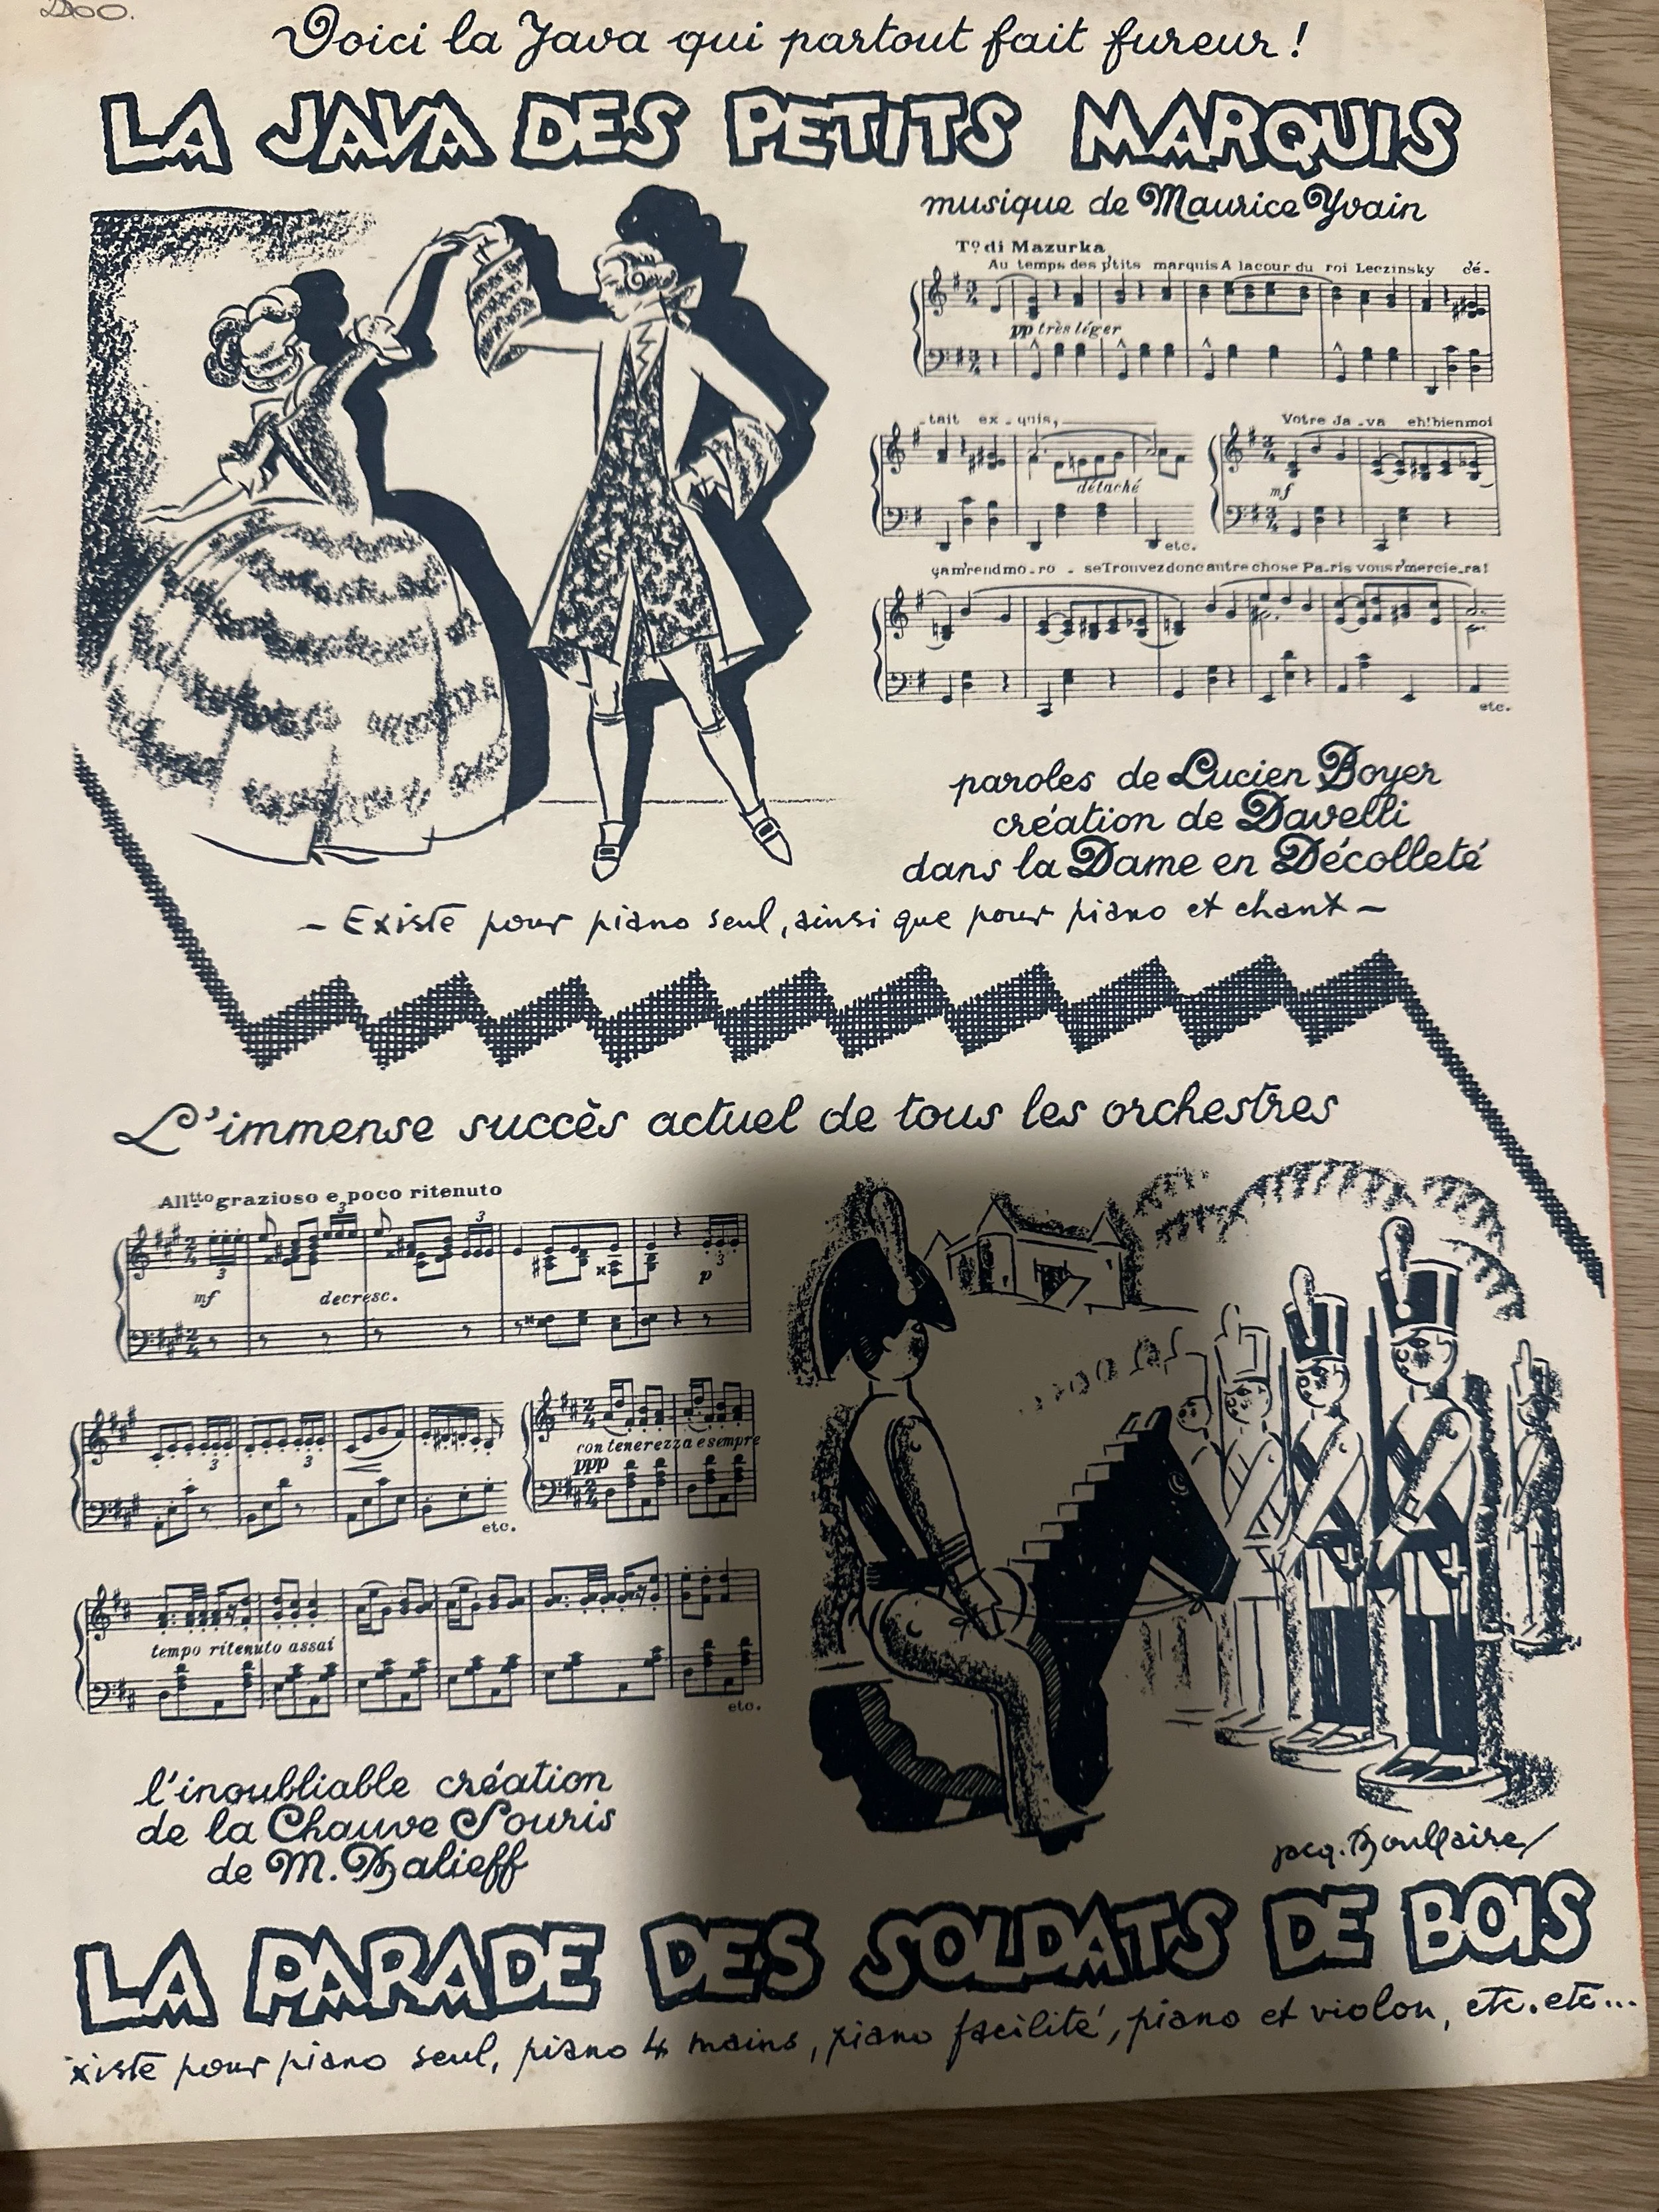 Voici la Java qui partout fait fureur !
LA JAVA DES PETITS MARQUIS
musique de Maurice Yvain
T.º di Mazurka
Au temps des p'tits marquis A la cour du roi Leczinsky c'é-
pp très léger
-tait ex-quis,
détaché
etc.
Votre Ja-va eh! bien moi
mf
ça m'rend mo-ro-se Trouvez donc autre chose Pa-ris vous r'mercie-ra!
etc.
paroles de Lucien Boyer
création de Davelli
dans la Dame en Décolleté
- Existe pour piano seul, ainsi que pour piano et chant -
L'immense succès actuel de tous les orchestres
All.tto grazioso e poco ritenuto
3 3
mf decresc. p
3 3
3 3
etc.
con tenerezza e sempre
ppp
tempo ritenuto assai
etc.
l'inoubliable création
de la Chauve Souris
de M. Balieff
jacq. Boullaire
LA PARADE DES SOLDATS DE BOIS
xiste pour piano seul, piano 4 mains, piano facilité, piano et violon, etc. etc...